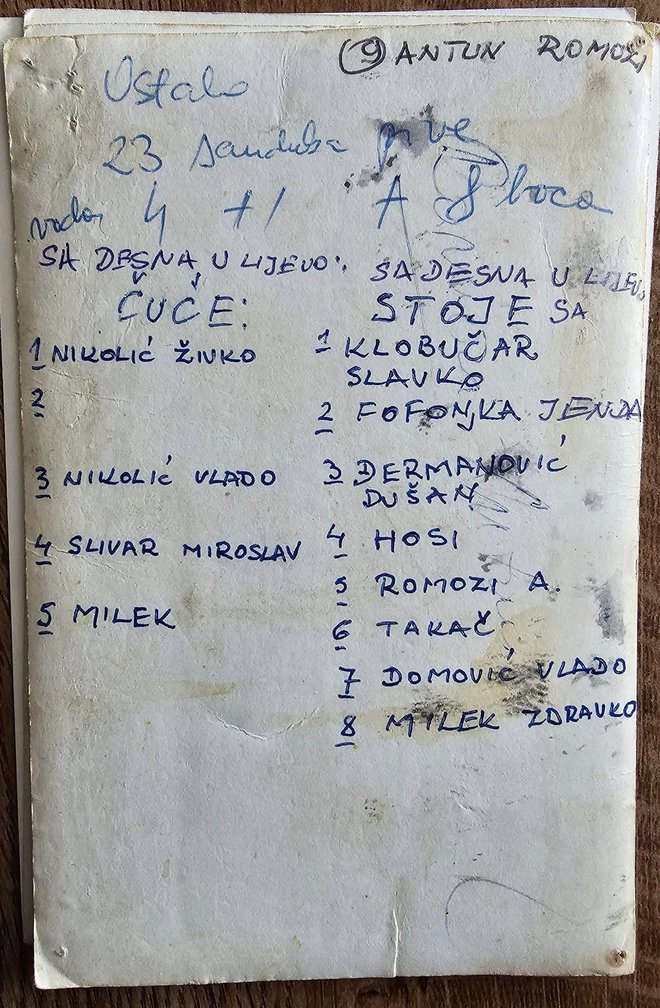 9 ANTUN ROMOZI
Ostalo
23 sanduka pive
voda 4 +1 A 8 boca
SA DESNA U LIJEVO:
ČUČE:
1 NIKOLIĆ ŽIVKO
2
3 NIKOLIĆ VLADO
4 SLIVAR MIROSLAV
5 MILEK
SA DESNA U LIJEVO
STOJE SA
1 KLOBUČAR
SLAVKO
2 FOFONJKA JENDA
3 DERMANOVIĆ
DUŠAN
4 HOSI
5 ROMOZI A.
6 TAKAČ
7 DOMOVIĆ VLADO
8 MILEK ZDRAVKO